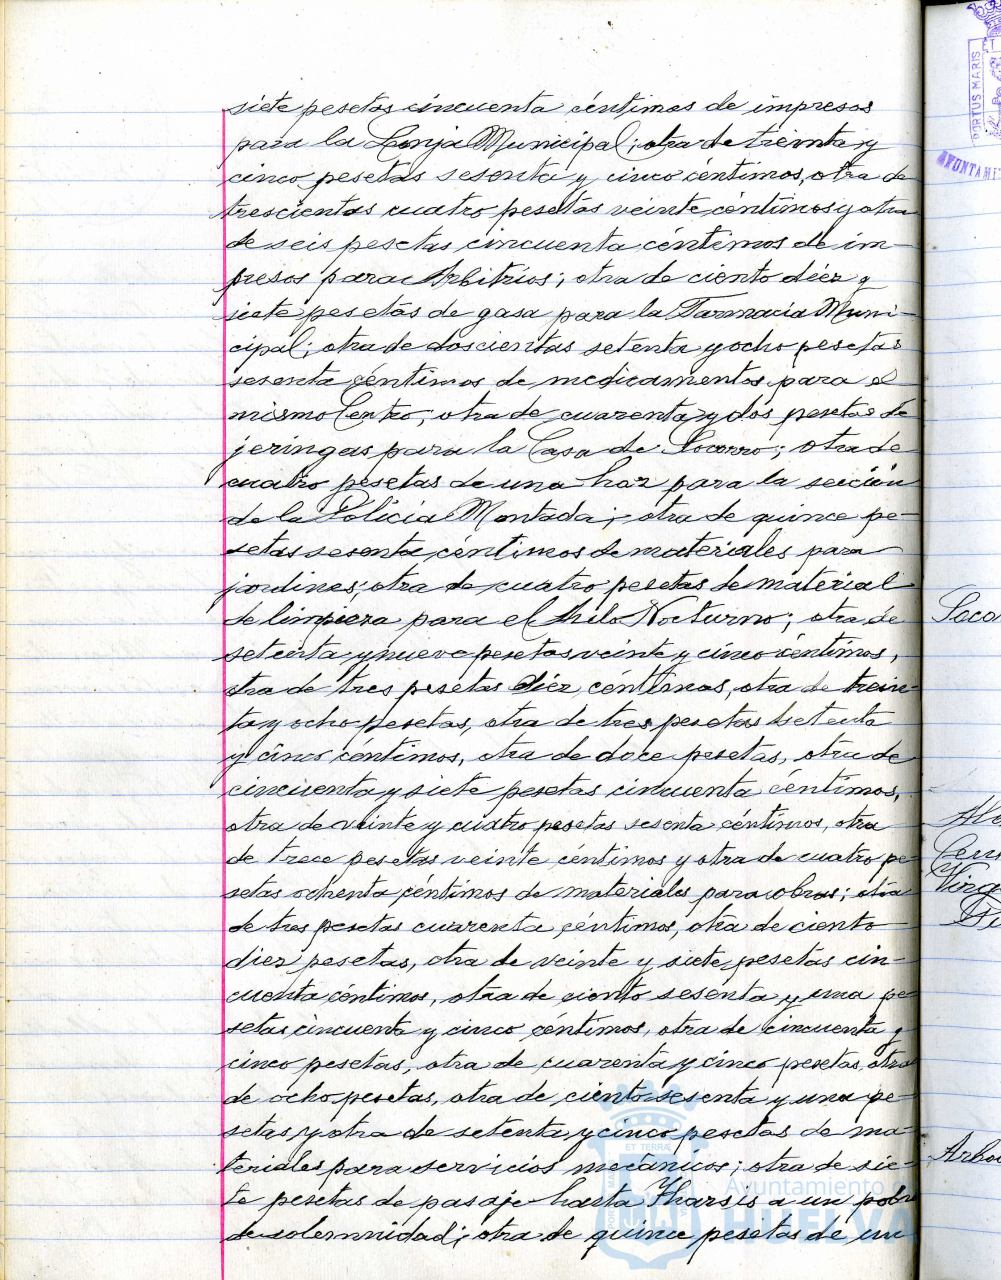 siete pesetas cincuenta céntimos de impresos
para la Lonja Municipal; otra de treinta y
cinco pesetas sesenta y cinco céntimos, otra de
trescientas cuatro pesetas veinte céntimos y otra
de seis pesetas cincuenta céntimos de im-
presos para Arbitrios; otra de ciento diez y
siete pesetas de gasa para la Farmacia Muni-
cipal; otra de doscientas setenta y ocho pesetas
sesenta céntimos de medicamentos para el
mismo Centro; otra de cuarenta y dos pesetas de
jeringas para la Casa de Socorro; otra de
cuatro pesetas de una hoz para la sección
de la Policía Montada; otra de quince pe-
setas sesenta céntimos de materiales para
jardines; otra de cuatro pesetas de material
de limpieza para el Asilo Nocturno; otra de
setenta y nueve pesetas veinte y cinco céntimos,
otra de tres pesetas diez céntimos, otra de trein-
ta y ocho pesetas, otra de tres pesetas setenta
y cinco céntimos, otra de doce pesetas, otra de
cincuenta y siete pesetas cincuenta céntimos,
otra de veinte y cuatro pesetas sesenta céntimos, otra
de trece pesetas veinte céntimos y otra de cuatro pe-
setas ochenta céntimos de materiales para obras; otra
de tres pesetas cuarenta céntimos, otra de ciento
diez pesetas, otra de veinte y siete pesetas cin-
cuenta céntimos, otra de ciento sesenta y una pe-
setas cincuenta y cinco céntimos, otra de cincuenta y
cinco pesetas, otra de cuarenta y cinco pesetas, otra
de ocho pesetas, otra de ciento sesenta y una pe-
setas y otra de setenta y cinco pesetas de ma-
teriales para servicios mecánicos; otra de sie-
te pesetas de pasaje hasta Tharsis a un pobre
de solemnidad; otra de quince pesetas de un
PORTUS MARIS
AYUNTAMI
Arbo
ET TERRÆ
Ayuntamiento d
HUELVA